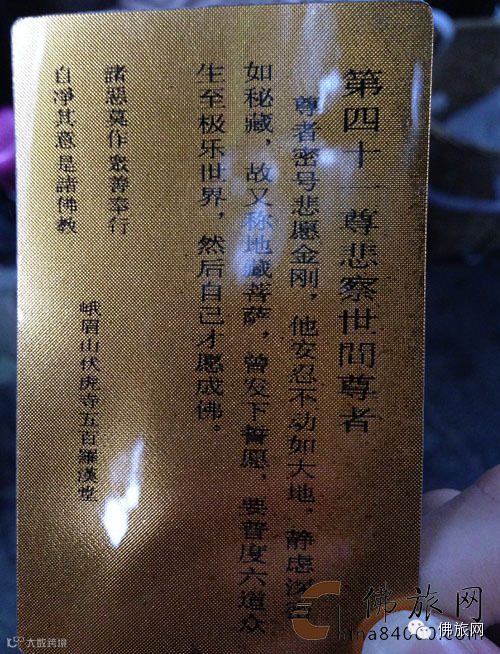 第四十一尊悲察世間尊者
尊者密号悲愿金刚，他安忍不动如大地，静虑深密
如秘藏，故又称地藏菩萨，曾发下誓愿，要普度六道众
生至极乐世界，然后自己才愿成佛。
諸惡莫作眾善奉行
自淨其意是諸佛教
峨眉山伏虎寺五百羅漢堂
佛旅网
佛旅网
大数跨境